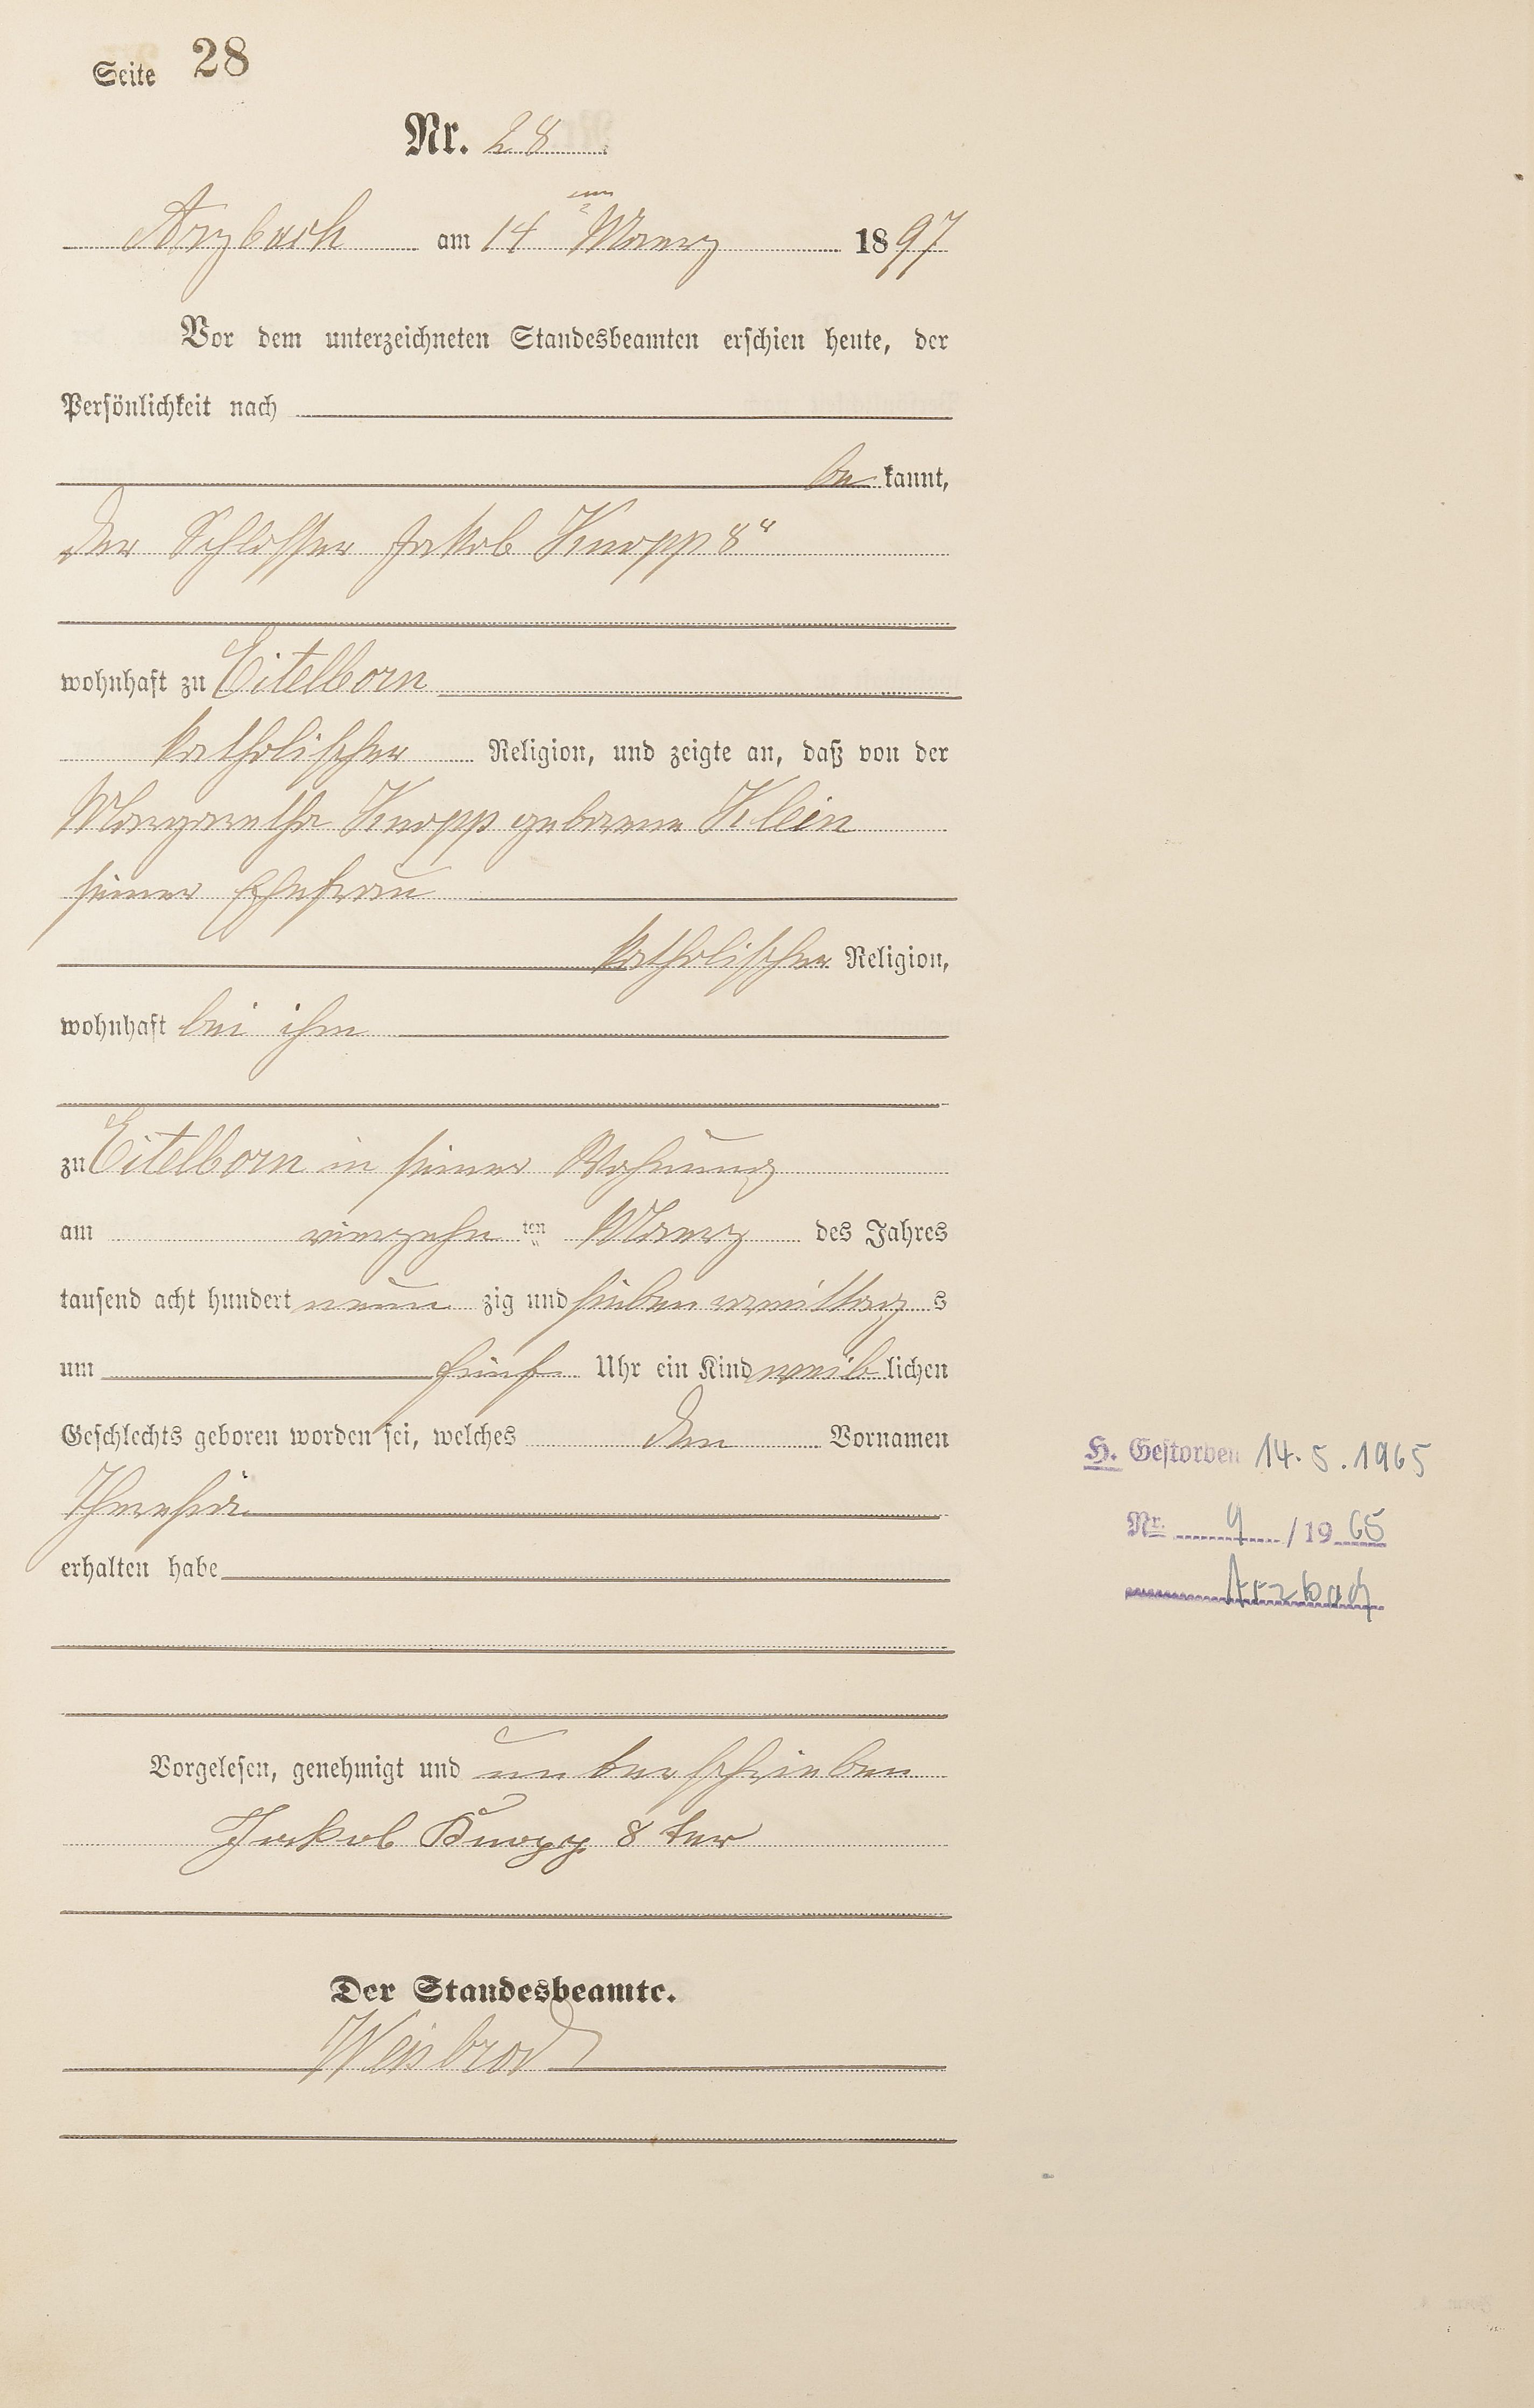 Seite 28
Nr. 28
Arzbach am 14ten Maerz 1897
Vor dem unterzeichneten Standesbeamten erschien heute, der
Persönlichkeit nach
be kannt,
der Schlosser Jakob Knopp 8r
wohnhaft zu Eitelborn
katholischer Religion, und zeigte an, daß von der
Margaretha Knopp geborene Klein
seiner Ehefrau
katholischer Religion,
wohnhaft bei ihm
zu Eitelborn in seiner Wohnung
am vierzehn ten Maerz des Jahres
tausend acht hundert neun zig und sieben mittag s
um fünf Uhr ein Kind weib lichen
Geschlechts geboren worden sei, welches den Vornamen
Theresia
erhalten habe
Vorgelesen, genehmigt und unterschrieben
Jakob Knopp 8 ter
Der Standesbeamte.
Weisbrod
H. Gestorben 14.5.1965
Nr. 9 /19 65
Arzbach